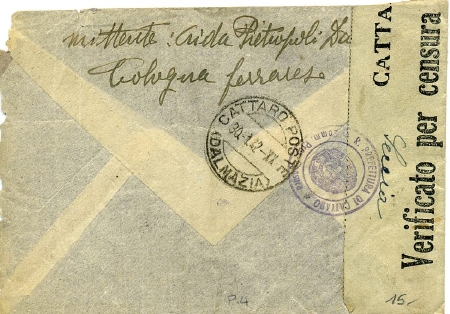 mittente: Aida Pietropoli Da
Cologna ferrarese
CATTARO POSTE
(DALMAZIA)
R. PREFETTURA DI CATTARO
CATTA
Verificato per censura
P.4
15.-